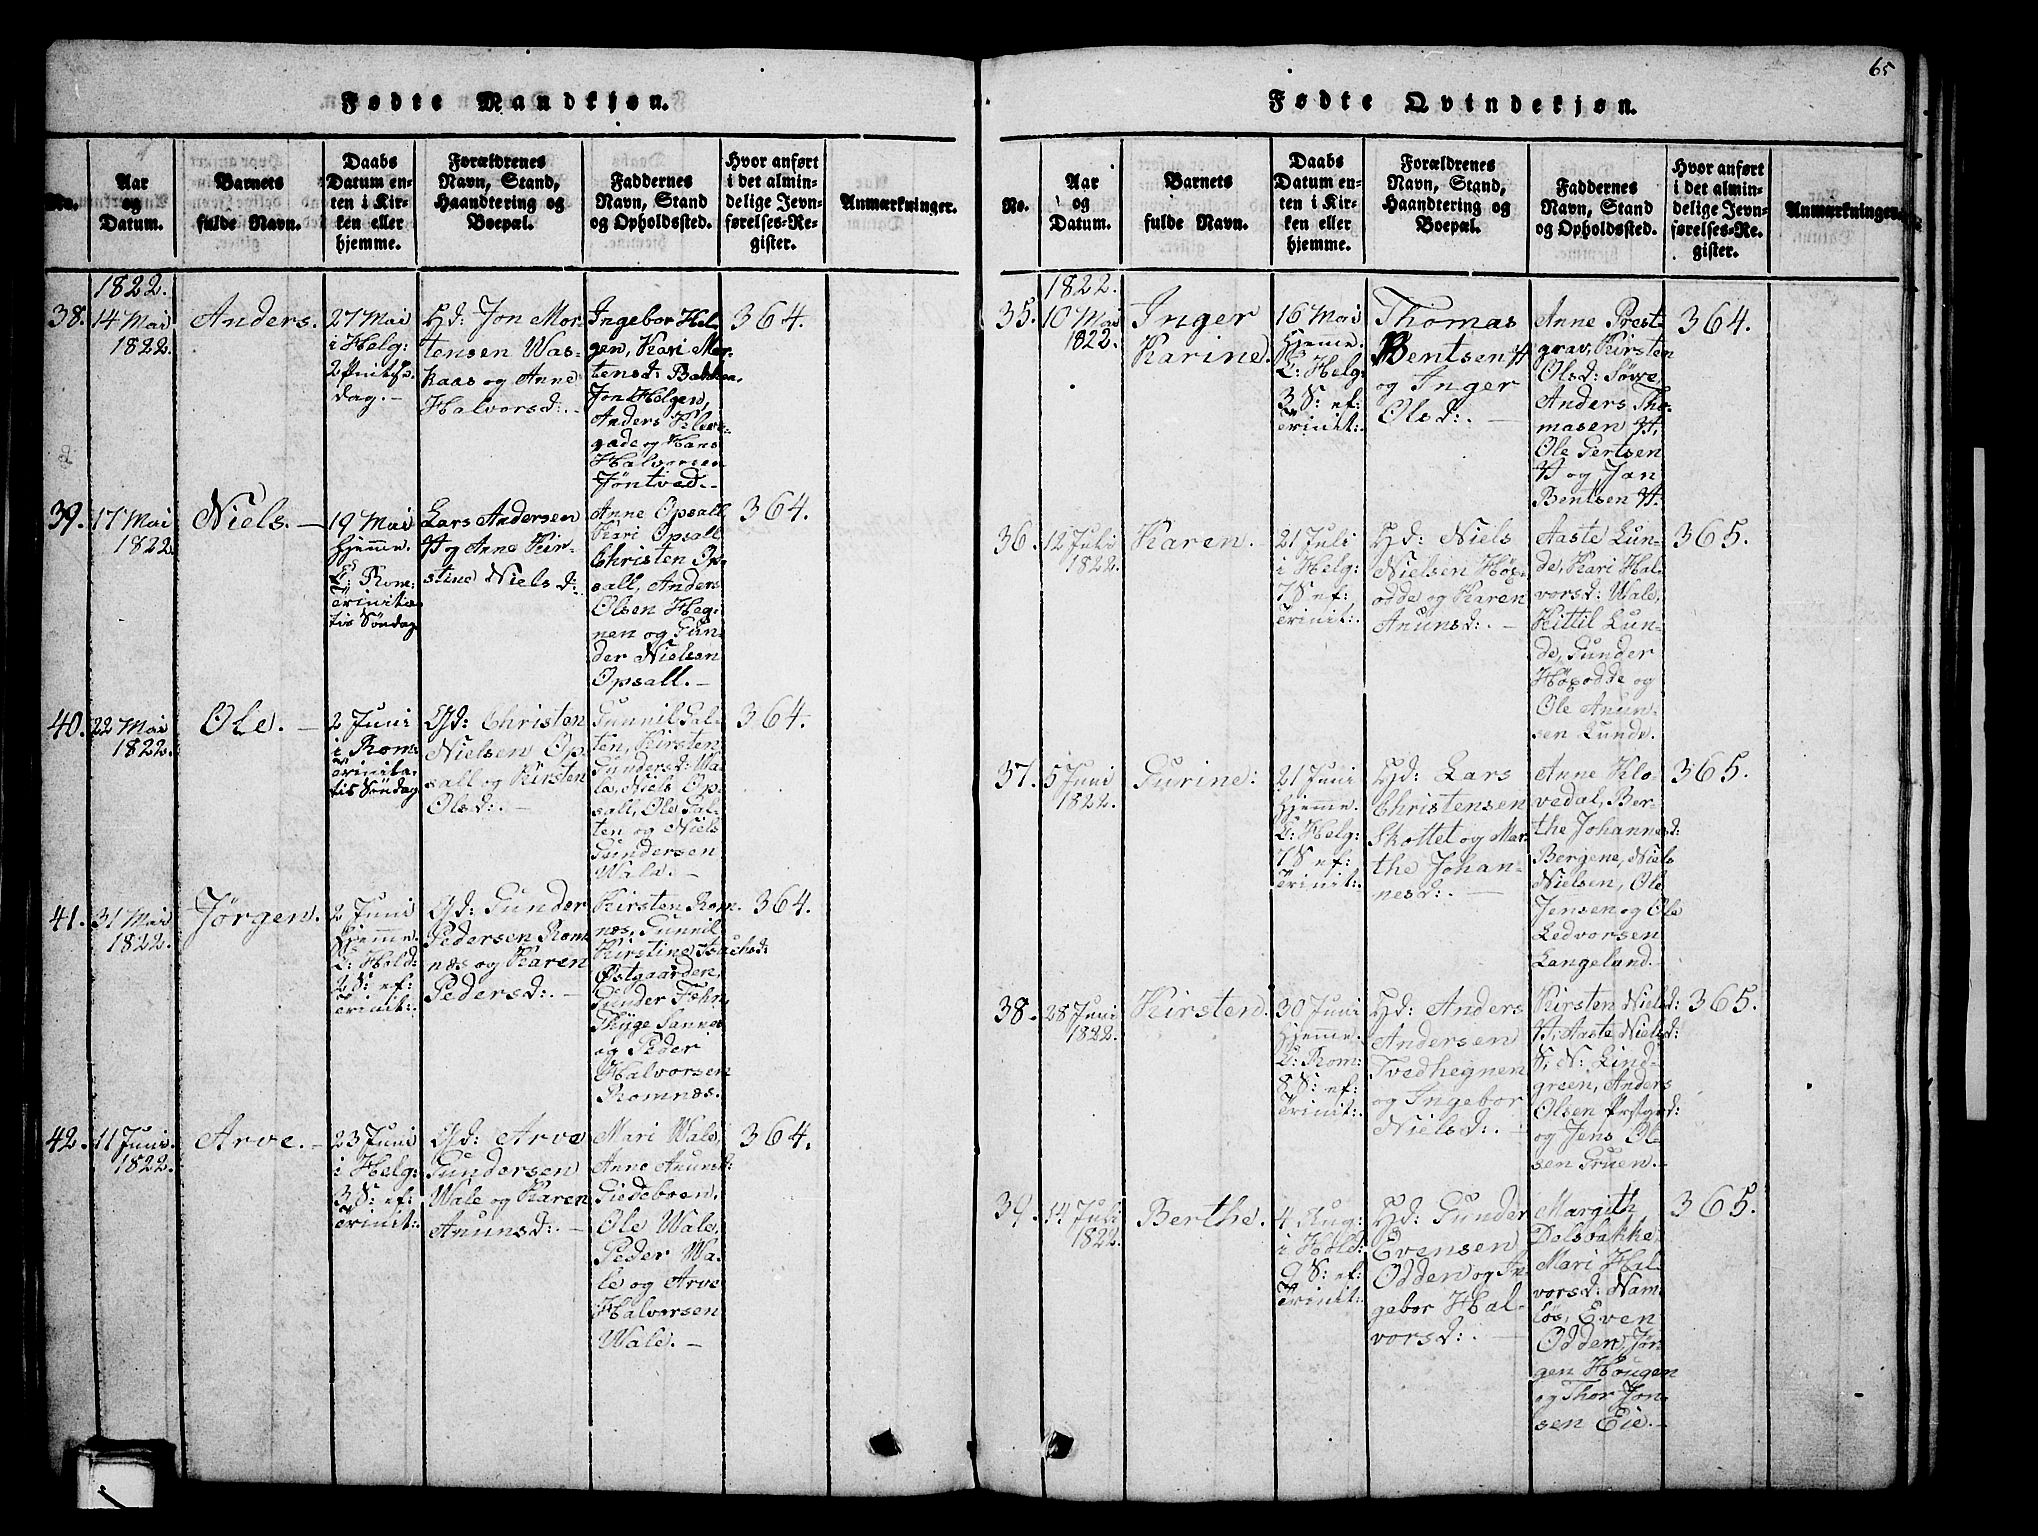 Fødte Mandkjøn.
No.
Aar
og
Datum.
Barnets
fulde Navn.
Daabs
Datum en-
ten i Kir-
ken eller
hjemme.
Forældrenes
Navn, Stand,
Haandtering og
Boepæl.
Faddernes
Navn, Stand
og Opholdssted.
Hvor anført
i det almin-
delige Jevn-
førelses-Re-
gister.
Anmærkninger.
1822.
38.
14 Mai
1822.
Anders.
27 Mai
i Helg:
2 Pintse
dag.-
Gd: Jon Mor-
tensen Was-
kaas og Anne
Halvorsd:.-
Ingebor Hel-
gen, Kari Mor-
tensd: Bakken,
Jon Helgen,
Anders
gade og Hans
Halvorsen
Jøntved.-
364.
39.
17 Mai
1822.
Niels.-
19 Mai
hjemme.
C: Rom:
Trinita-
tis Søndag
Lars Andersen
og Anne Kir-
stine Nielsd:
Anne Opsall
Kari Opsall
Christen Op-
sall, Anders
Olsen Heg-
nen og Gun-
der Nielsen
Opsall.-
364.
40.
22 Mai
1822.
Ole.-
2 Juni
i Rom:
Trinita-
tis Søndag
Gd: Christen
Nielsen Op-
sall og Kirsten
Olsd:.-
Gunnil Sal-
ten, Kirsten
Gundersd: Wa-
le, Niels Op-
sall, Ole Sal-
ten og Niels
Gundersen
Wale.-
364.
41.
31 Mai
1822.
Jørgen.
2 Juni
hjemme.
C: Hold:
2 S: ef:
Trinit:.
Gd: Gunder
Pedersen Rom-
næs og Karen
Pedersd:.-
Kirsten Rom-
næs, Gunnil
Kirstine Isachsd:
Østgaarden,
Gunder Fehn,
Thyge Sannes
og Peder
Halvorsen
Romnæs.
364.
42.
11 Juni
1822.
Arve.-
23 Juni
i Helg:
3 S: ef:
Trinit:.
Gd: Arve
Gundersen
Wale og Karen
Anunsd:.-
Mari Wale,
Anne Anunsd:
Giedeboen,
Ole Wale,
Peder Wa-
le og Arve
Halvorsen
Wale.-
364.
65
Fødte Qvindekjøn.
No.
Aar
og
Datum.
Barnets
fulde Navn.
Daabs
Datum en-
ten i Kir-
ken eller
hjemme.
Forældrenes
Navn, Stand,
Haandtering og
Boepæl.
Faddernes
Navn, Stand
og Opholdssted.
Hvor anført
i det almin-
delige Jevn-
førelses-Re-
gister.
Anmærkninger.
1822.
35.
10 Mai
1822.
Inger
Karine.
16 Mai
hjeme.
C: Helg:
3 S: ef:
Trinit:.
Thomas
Bentsen
og Inger
Olsd:.-
Anne Prest-
grav, Kirsten
Olsd: Søvve,
Anders Tho-
masen
Ole Gertsen
og Jan
Bentsen
364.
36.
12 Juli
1822.
Karen.
21 Juli
i Helg:
7 S: ef:
Trinit:.
Gd: Niels
Nielsen Høg-
odde og Karen
Anunsd:.-
Aaste Lun-
de, Kari Hal-
vorsd: Wale,
Kittil Lun-
de, Gunder
Høgodde og
Ole Anun-
sen Lunde.
365.
37.
5 Juni
1822.
Gurine:
21 Juni
hjemme.
C: Helg:
7 S: ef:
Trinit:.
Hd: Lars
Christensen
Skottet og Mar-
the Johan-
nesd:.-
Anne Klo-
vedal, Ber-
the Johannesd:
Bergene, Niels
Nielsen, Ole
Jensen og Ole
Ledvorsen
Langeland.-
365.
38.
28 Juni
1822.
Kirsten.
30 Juni
hjemme.
C: Rom:
8 S: ef:
Trinit:.
Hd: Anders
Andersen
Tvedhegnen
og Ingebor
Nielsd:.-
Kirsten Nielsd:
Aaste Nielsd:
N: Lind-
green, Anders
Olsen Prstgrd:
og Jens Ole-
sen Gruen.-
365.
39.
14 Juli
1822.
Berthe.
4 Aug:
i Hold:
9 S: ef:
Trinit:.
Hd: Gunder
Evensen
Odden og In-
gebor Hal-
vorsd:.-
Margith
Dalsbakke,
Mari Hal-
vorsd: Nam-
løs, Even
Odden, Jør-
gen Haugen
og Thor Jon-
sen Eie.-
365.